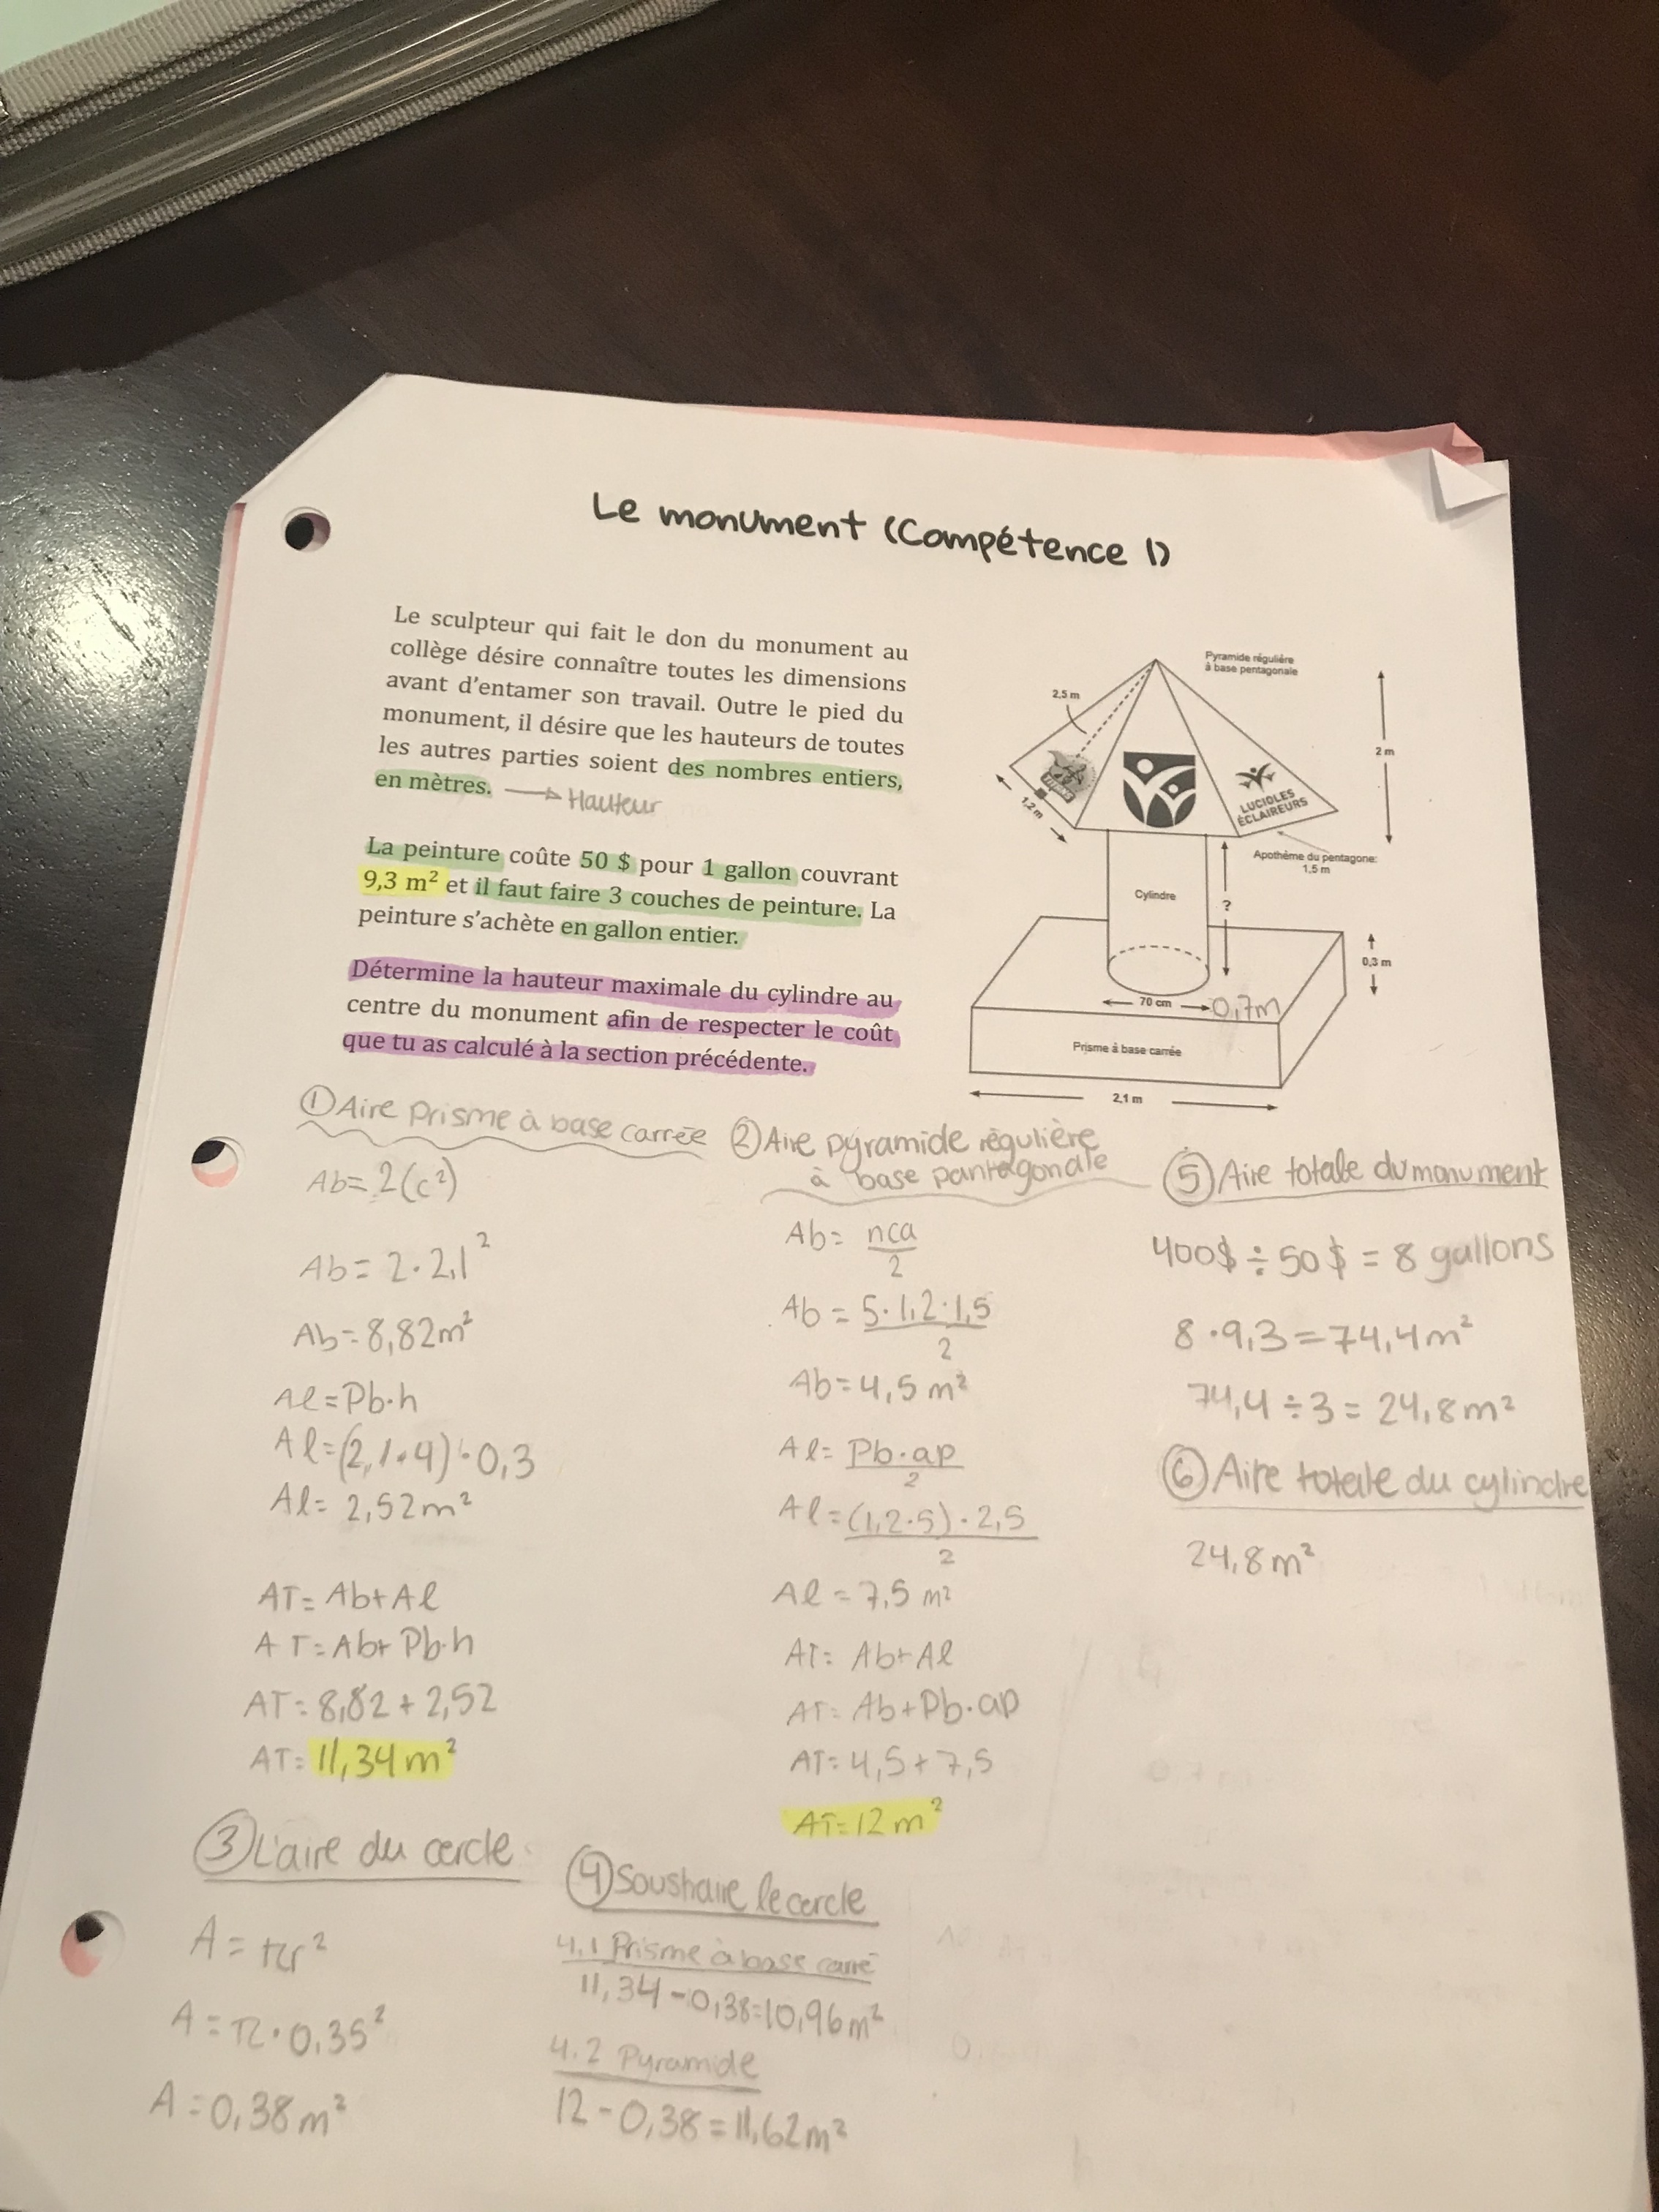 Le monument (Compétence 1)
Le sculpteur qui fait le don du monument au
collège désire connaître toutes les dimensions
avant d'entamer son travail. Outre le pied du
monument, il désire que les hauteurs de toutes
les autres parties soient des nombres entiers,
en mètres. → Hauteur
La peinture coûte 50 $ pour 1 gallon couvrant
9,3 m² et il faut faire 3 couches de peinture. La
peinture s'achète en gallon entier.
Détermine la hauteur maximale du cylindre au
centre du monument afin de respecter le coût
que tu as calculé à la section précédente.
Pyramide régulière
à base pentagonale
2,5 m
2 m
1,2 m
LUCIOLES
ÉCLAIREURS
Apothème du pentagone:
1,5 m
Cylindre
?
0,3 m
70 cm
0,7m
Prisme à base carrée
2,1 m
① Aire prisme à base carrée
Ab= 2(c²)
Ab= 2·2,1²
Ab= 8,82m²
Al=Pb·h
Al=(2,1·4)·0,3
Al= 2,52m²
AT= Ab+Al
AT=Ab+Pb·h
AT= 8,82+2,52
AT= 11,34m²
② Aire pyramide régulière
à base pantagonale
Ab= nca
2
Ab = 5·1,2·1,5
2
Ab=4,5 m²
Al= Pb·ap
2
Al=(1,2·5)·2,5
2
Al=7,5 m²
AT= Ab+Al
AT= Ab+Pb·ap
AT= 4,5+7,5
AT=12m²
③ L'aire du cercle
A=πr²
A=π·0,35²
A=0,38m²
④ Soustraire le cercle
4.1 Prisme à base carré
11,34-0,38=10,96m²
4.2 Pyramide
12-0,38=11,62m²
⑤ Aire totale du monument
400$÷50$=8 gallons
8·9,3=74,4m²
74,4÷3=24,8m²
⑥ Aire totale du cylindre
24,8m²